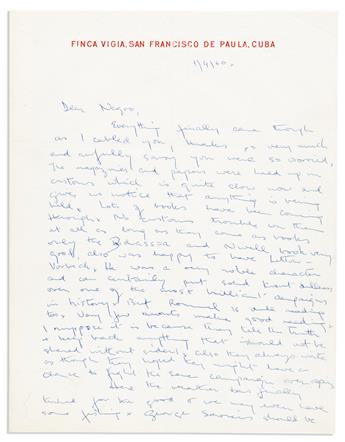 FINCA VIGIA, SAN FRANCISCO DE PAULA, CUBA
1/4/60.
Dear Negro,
Everything finally came though
as I cabled you, thanks so very much
and awfully sorry you were so worried,
The magazines and papers were held up in
customs which is quite slow now and
give us notice that anything is being
held. Lots of books have been coming
through. No customs trouble on them
at all as long as they come as books
only the and book very
good, also was happy to have
He was a very noble character
and can certainly put solid
over one of the most brilliant campaigns
in history. But Rommel is
too. Very few make good reading.
I suppose it is because they tell the truth
& keep back anything that should not be
shared without orders & also they always write
as though they hoped they might have a
chance to fight the same campaign over again
Here the weather has finally
turned for the good & we may even have
some fishing. George should be